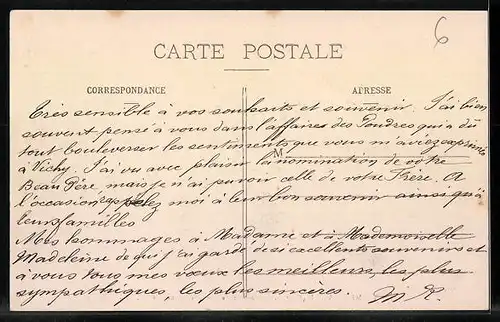 6
CARTE POSTALE
CORRESPONDANCE
ADRESSE
Très sensible à vos souhaits et souvenir. J'ai bien
souvent pensé à vous dans l'affaires des Poudres qui a dû
tout bouleverser les sentiments que vous m'aviez exprimés
à Vichy. J'ai vu avec plaisir la nomination de votre
Beau Père, mais je n'ai pu voir celle de votre Frère. A
l'occasion rappelez moi à leur bon souvenir ainsi qu'à
leurs familles
Mes hommages à Madame et à Mademoiselle
Madeleine de qui j'ai gardé de si excellents souvenirs et
à vous tous mes vœux les meilleurs, les plus
sympathiques, les plus sincères.